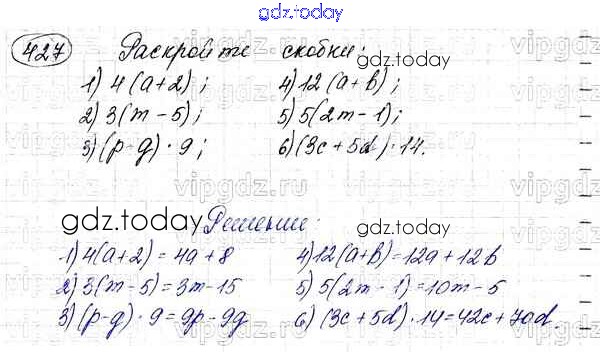 gdz.today
427 Раскройте скобки:
1) 4(a+2); 4) 12(a+b);
2) 3(m-5); 5) 5(2m-1);
3) (p-q)·9; 6) (3c+5d)·14.
gdz.today
gdz.today
gdz.today
Решение:
1) 4(a+2)=4a+8 4) 12(a+b)=12a+12b
2) 3(m-5)=3m-15 5) 5(2m-1)=10m-5
3) (p-q)·9=9p-9q 6) (3c+5d)·14=42c+70d.
vipgdz.ru